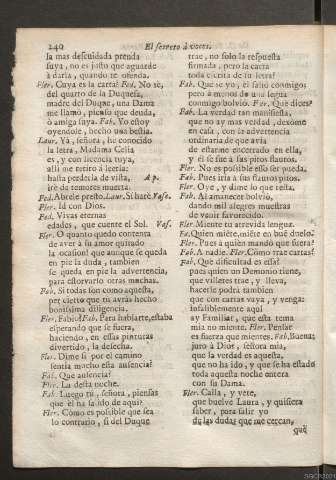 240
El secreto à voces.
la mas descuidada prenda
suya, no es justo que aguarde
à darla, quando te ofenda.
Fler. Cuya es la carta? Fed. No se,
del quarto de la Duquesa,
madre del Duque, una Dama
me llamò, pienso que deuda,
ò amiga suya. Fab. Yo estoy
oyendole, hecho una bestia.
Laur. Yà, señora, he conocido
la letra, Madama Celia
es, y con licencia tuya,
alli me retiro à leerla:
hasta perderla de vista, Ap.
irè de temores muerta.
Fed. Abrele presto. Laur. Si harè Vase.
Fler. Id con Dios.
Fed. Vivas eternas
edades, que cuente el Sol. Vase.
Fler. O quanto quedo contenta
de aver à su amor quitado
la ocasion! que aunque se queda
en pie la duda, tambien
se queda en pie la advertencia,
para estorvarlo otras machas.
Fab. Si todas son como aquesta,
por cierto que tu avràs hecho
bonissima diligencia.
Fler. Fabio? Fab. Para hablarte, estaba
esperando que se fuera,
haciendo, en essas pinturas
divertido, la desecha.
Fler. Dime si por el camino
sentia mucho esta ausencia?
Fab. Que ausencia?
Fler. La desta noche.
Fab. Luego tu, señora, piensas
que èl ha salido de aqui?
Fler. Còmo es possible que sea
lo contrario, si del Duque
trae, no solo la respuesta
firmada, pero la carta
toda escrita de su letra?
Fab. Que se yo, èl saliò conmigo;
pero à menos de una legua
conmigo bolviò. Fler. Què dices?
Fab. La verdad tan manifiesta,
que no ay mas verdad, dexòme
en casa, con la advertencia
ordinaria de que avia
de estarme encerrado en ella,
y èl se fue à sus pitos flautos.
Fler. No es possible esso ser pueda.
Fab. Pues iria à sus flautos pitos.
Fler. Oye, y dime lo que resta.
Fab. Al amanecer bolviò,
dando mil alegres muestras
de venir favorecido.
Fler. Miente tu atrevida lengua.
Fab. Quien miète, miète en buè duelo.
Fler. Pues à quien mandò que fuera?
Fab. A nadie. Fler. Còmo trae cartas?
Fab. Què dificultad es essa?
pues quien un Demonio tiene,
que villetes trae, y lleva,
hacerle podrà tambien
que con cartas vaya, y venga:
infaliblemente aqui
ay Familiar, que esta tema
mia no miente. Fler. Pensar
es fuerza que mientes. Fab. Buena;
juro à Dios, señora mia,
que la verdad es aquesta,
que no ha ido, y que se ha estado
toda aquesta noche entera
con su Dama.
Fler. Calla, y vete,
que buelve Laura, y quisiera
saber, para salir yo
de las dudas que me cercan,
què